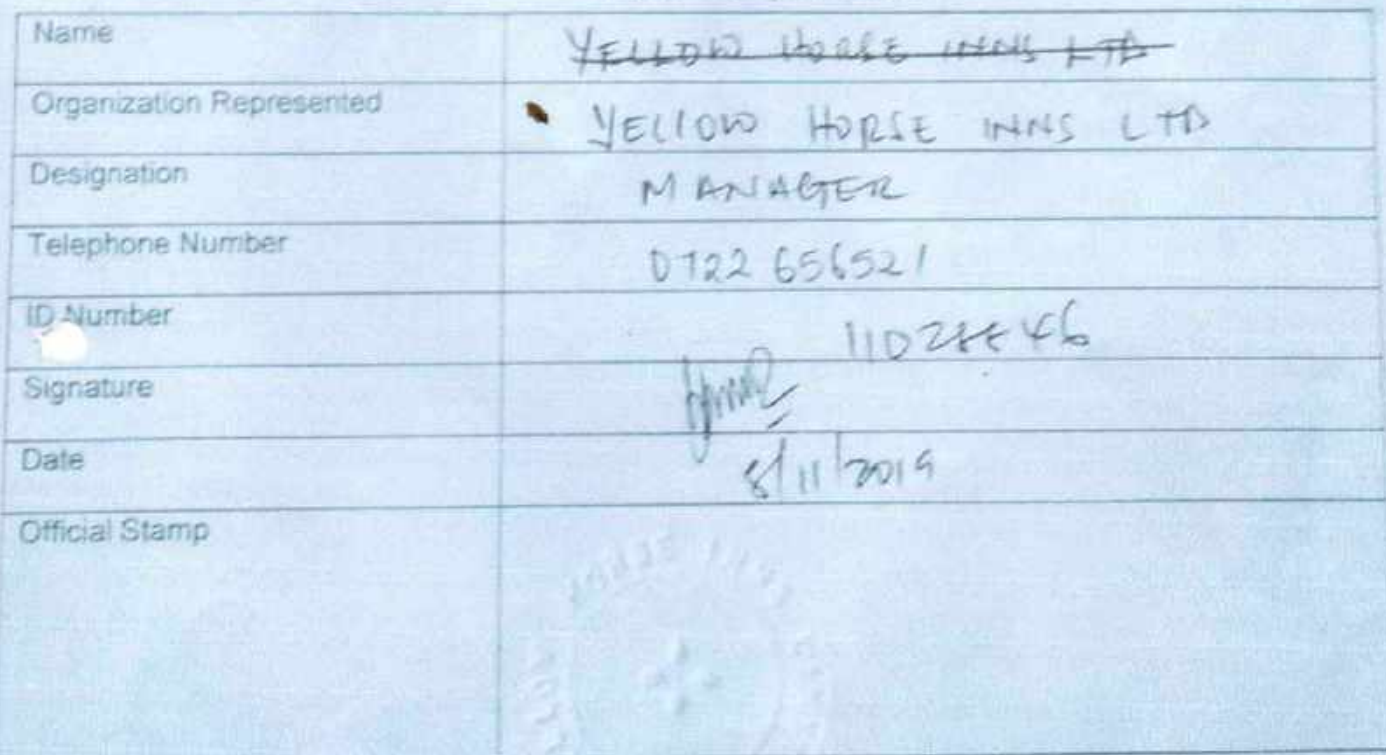 Name YELLOW HORSE INNS LTD
Organization Represented YELLOW HORSE INNS LTD
Designation MANAGER
Telephone Number 0722 656521
ID Number
Signature
Date 8/11/2019
Official Stamp